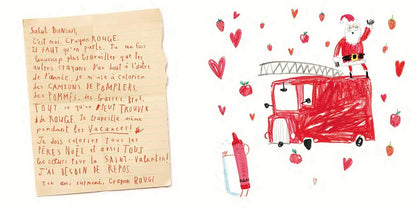 Salut Duncan,
C'est moi, Crayon ROUGE.
IL FAUT qu'on parle. Tu me fais
beaucoup plus travailler que les
autres crayons. D'un bout à l'autre
de l'année, je m'use à colorier
des CAMIONS DE POMPIERS,
des POMMES, des fraises et
TOUT ce qu'on PEUT TROUVER
DE ROUGE. Je travaille même
pendant les Vacances!
Je dois colorier tous les
PÈRES NOËL et aussi TOUS
les cœurs pour la SAINT-Valentin!
J'AI BESOIN DE REPOS.
Ton ami surmené, Crayon ROUGE